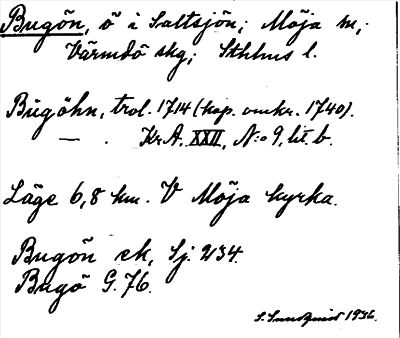 Bugön, ö i Saltsjön; Möja sn,
Värmdö skg; Sthlms l.
Bùgöhn, trol. 1714 (kop. omkr. 1740).
— . Kr.A. XXII, N:o 9, lit. b.
Läge 6,8 km. V Möja kyrka.
Bugön ek, Sj. 234.
Bugö G. 76.
S. Sundquist 1936.